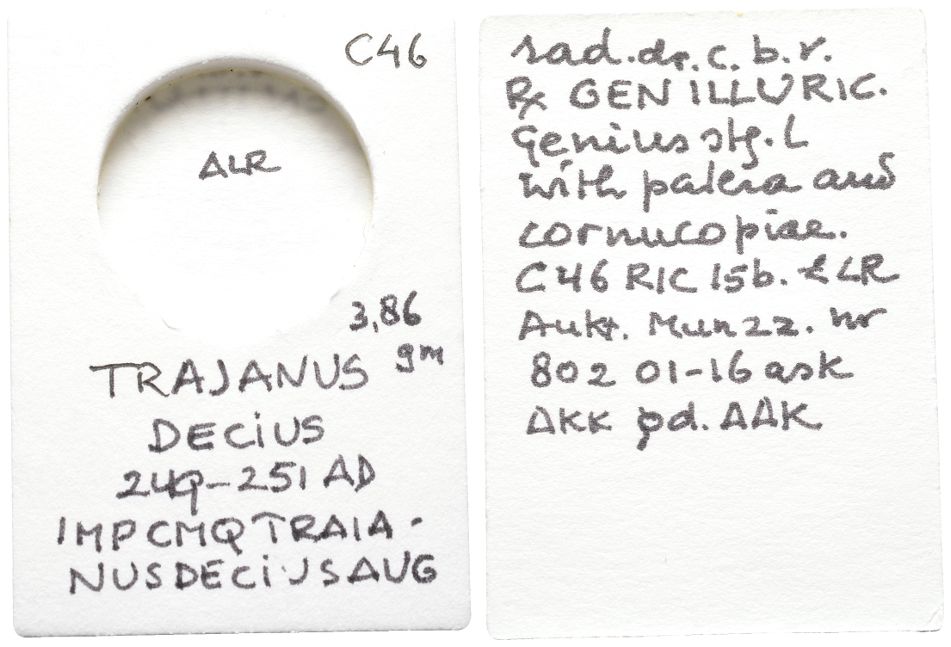 C46
ALR
3,86
gm
TRAJANUS
DECIUS
249-251 AD
IMPCMQTRAIA-
NUSDECIUSAUG
rad.dr.c.b.r.
Rx GENILLURIC.
Genius stg. L
with patera and
cornucopiae.
C46 RIC 15b. & LR
Aukt. Munzz. nr
802 01-16 ask
AKK pd. AAK